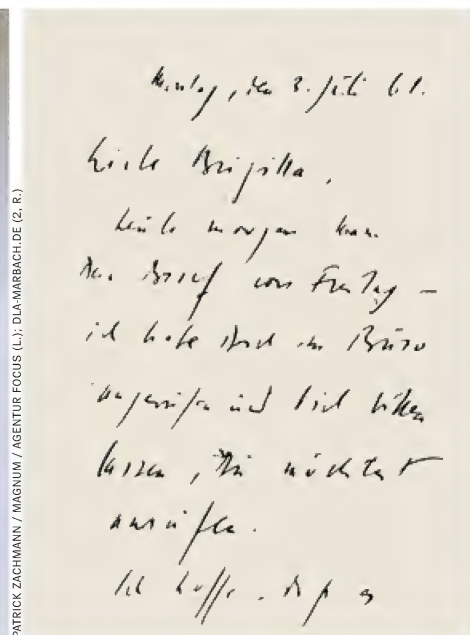 PATRICK ZACHMANN / MAGNUM / AGENTUR FOCUS (L.); DLA-MARBACH.DE (2, R.)
Montag, den 3. Juli 61.
Liebe Brigitta,
heute morgen kam
Dein Brief vom Freitag –
ich habe Dich im Büro
angerufen und Dich bitten
lassen, Du möchtest
anrufen.
Ich hoffe, daß es